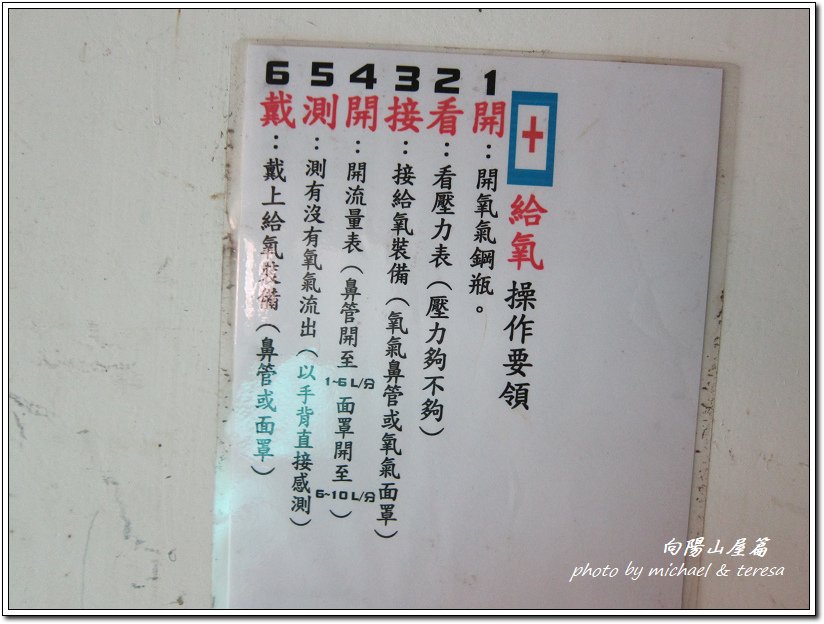 給氧操作要領
1 開：開氧氣鋼瓶。
2 看：看壓力表（壓力夠不夠）
3 接：接給氧裝備（氧氣鼻管或氧氣面罩）
4 開：開流量表（鼻管開至1~6L/分 面罩開至6~10L/分）
5 測：測有沒有氧氣流出（以手背直接感測）
6 戴：戴上給氧裝備（鼻管或面罩）
向陽山屋篇
photo by michael & teresa